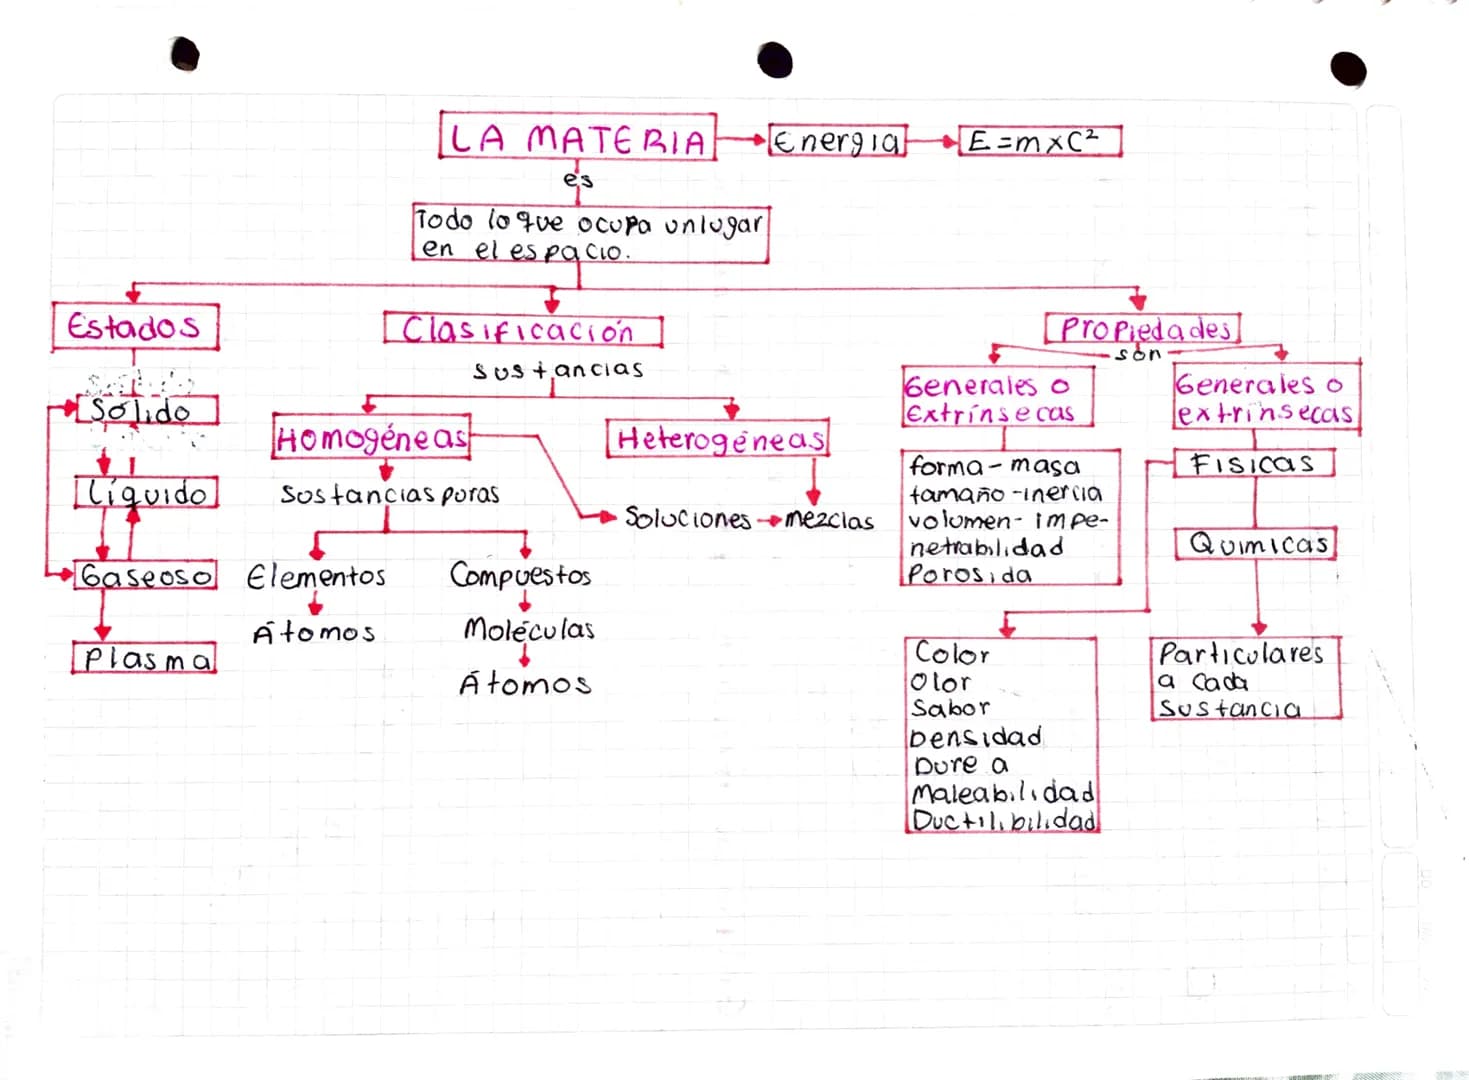 LA MATERIA
Energia
E=mxC²
es
Todo lo que ocupa un lugar
en el espacio.
Estados
Sólido
Líquido
Gaseoso
Plasma
Clasificación
sustancias
Homogéneas
Heterogéneas
Sustancias puras
Soluciones
mezclas
Elementos
Compuestos
Átomos
Moléculas
Átomos
Propiedades
són
Generales o
Extrínsecas
Generales o
extrinsecas
forma - masa
tamaño - inercia
volumen - impe-
netrabilidad
Porosida
Fisicas
Quimicas
Color
Olor
Sabor
Densidad
Dure a
Maleabilidad
Ductilibilidad
Particulares
a cada
sustancia